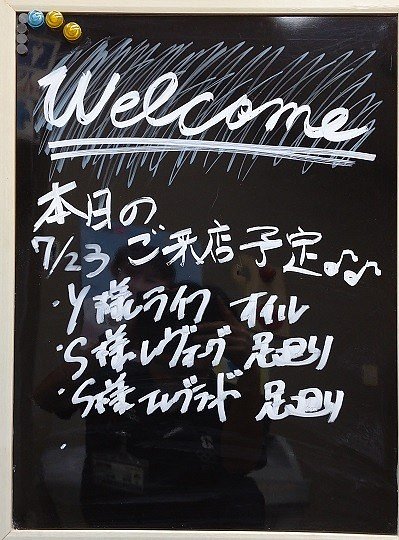 Welcome
本日の
7/23 ご来店予定♪♪
・Y様ライフ オイル
・S様レヴォーグ 足廻り
・S様エルグランド 足廻り